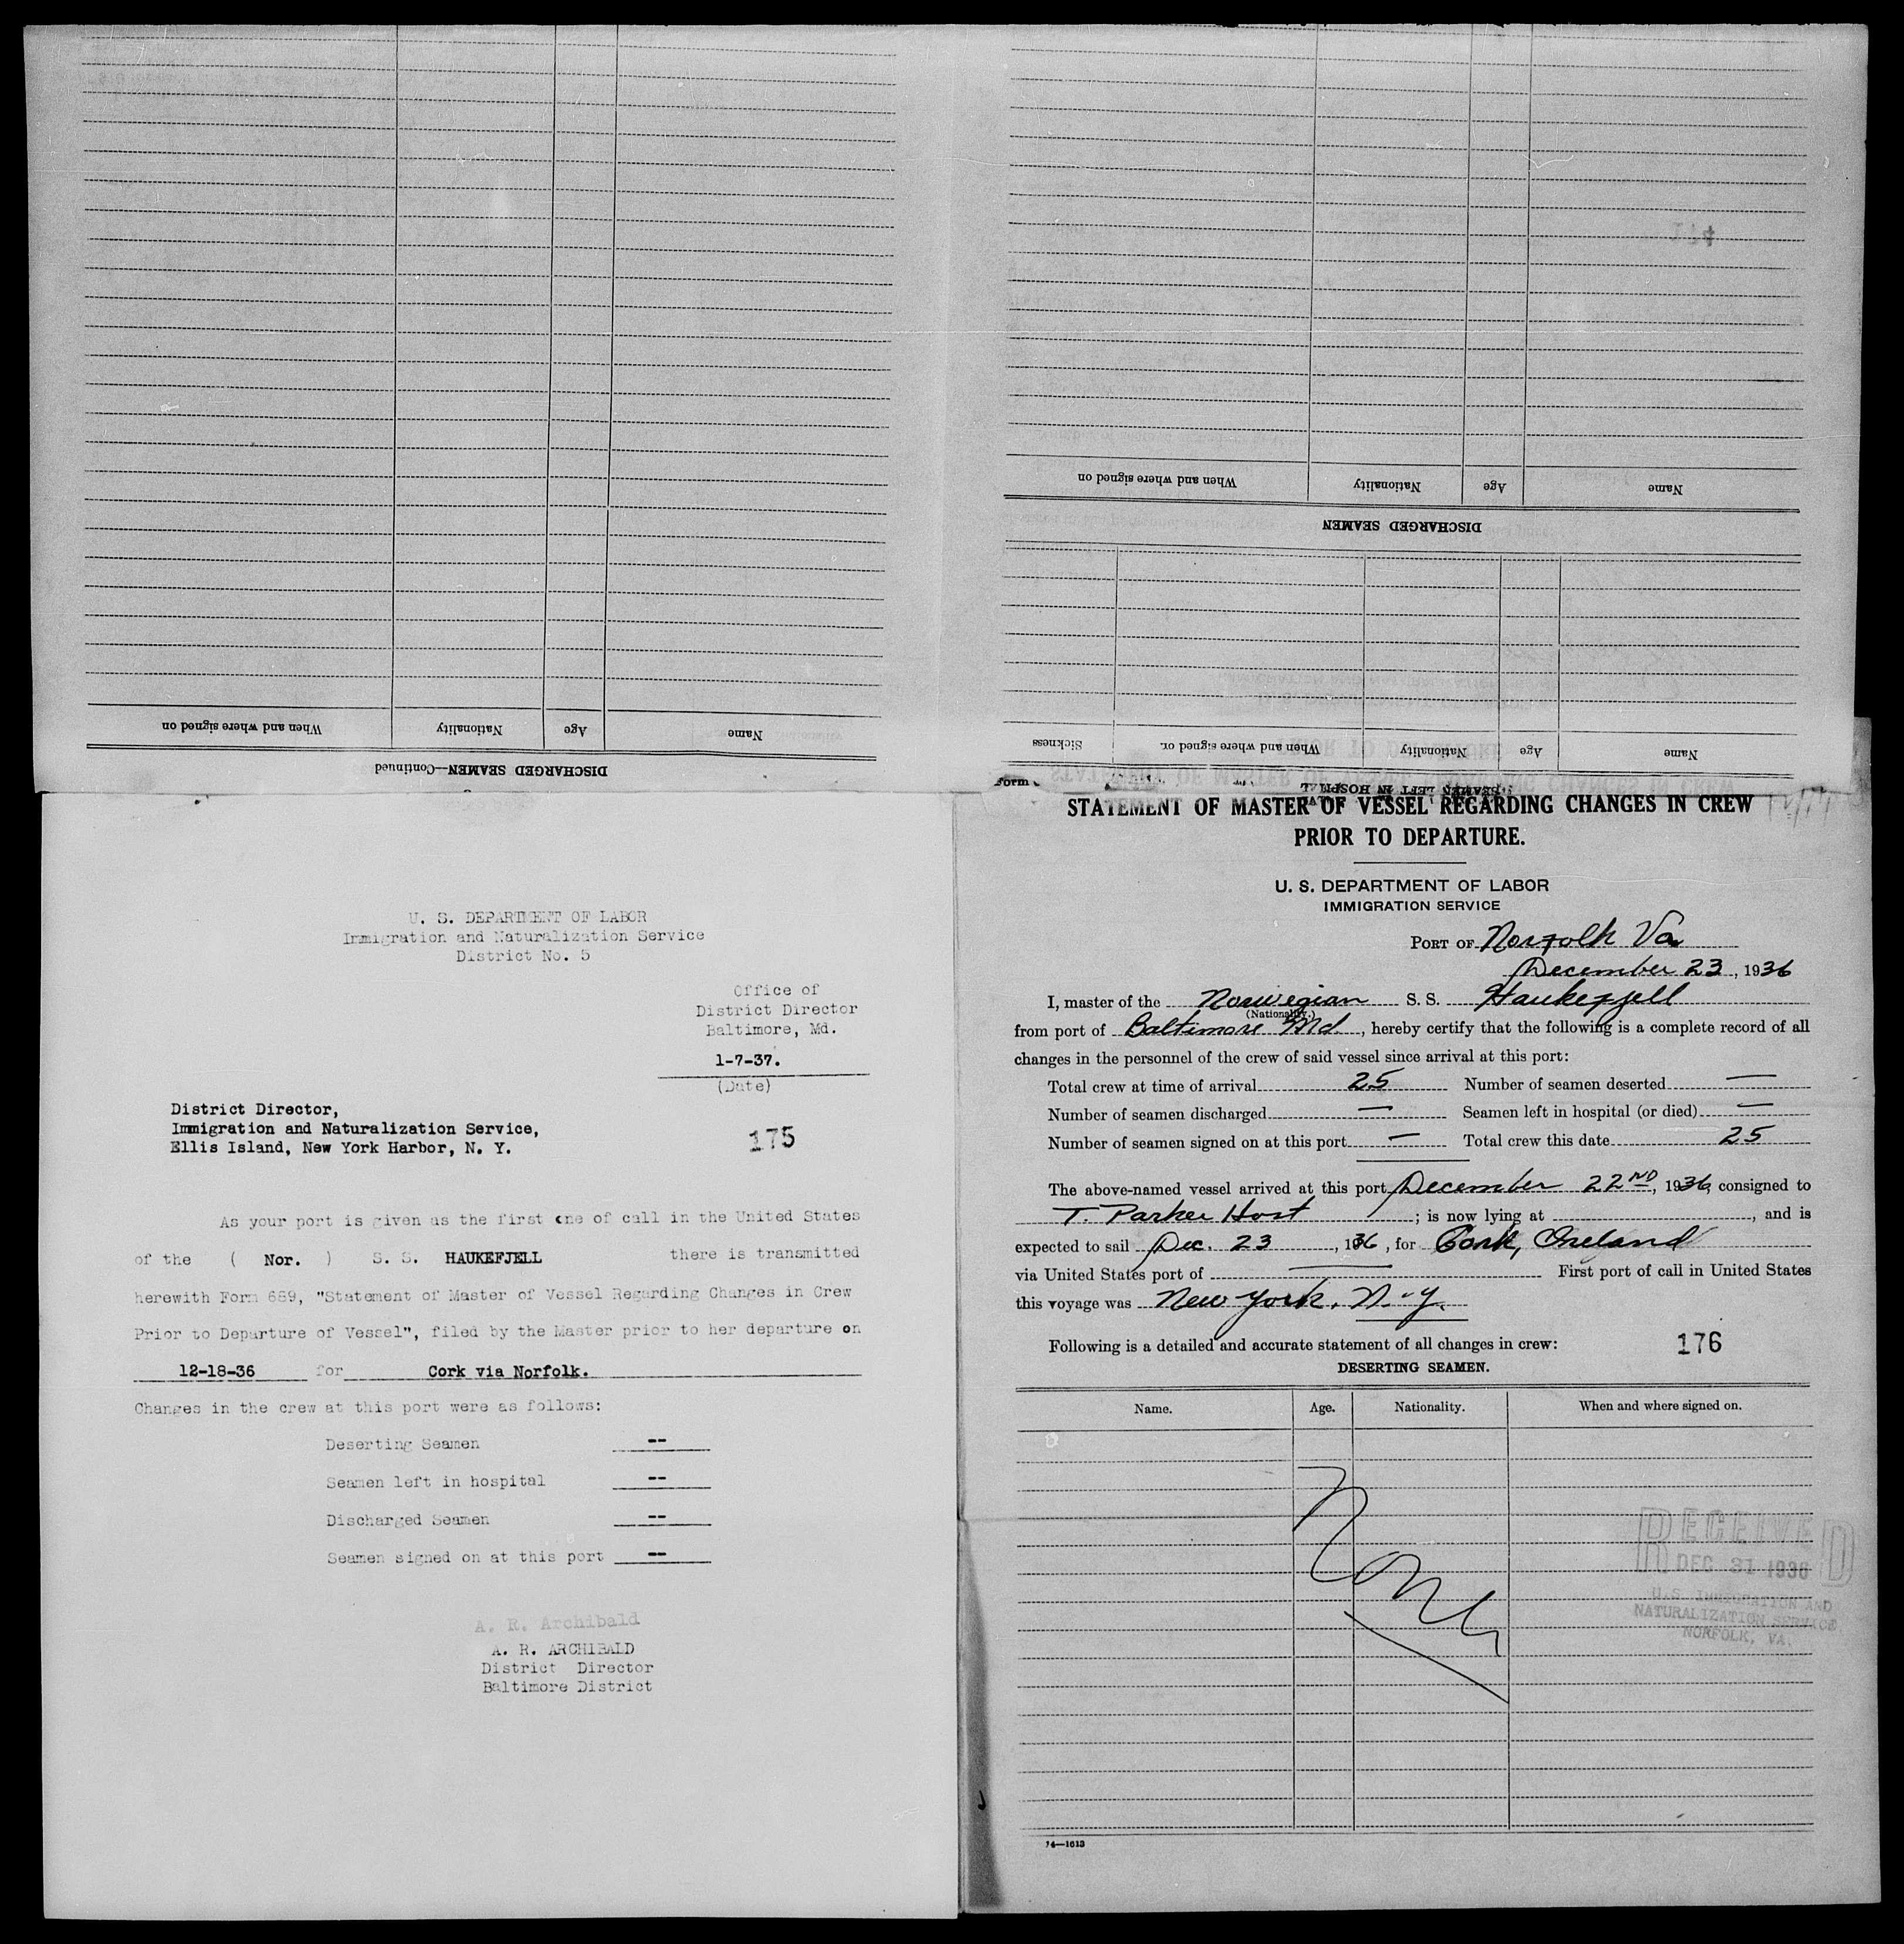 DISCHARGED SEAMEN—Continued
Name Age Nationality When and where signed on
Name Age Nationality When and where signed on Sickness
DISCHARGED SEAMEN
Name Age Nationality When and where signed on
U. S. DEPARTMENT OF LABOR
Immigration and Naturalization Service
District No. 5
Office of
District Director
Baltimore, Md.
1-7-37.
(Date)
District Director,
Immigration and Naturalization Service,
Ellis Island, New York Harbor, N. Y.
175
As your port is given as the first one of call in the United States
of the ( Nor. ) S. S. HAUKEFJELL there is transmitted
herewith Form 689, "Statement of Master of Vessel Regarding Changes in Crew
Prior to Departure of Vessel", filed by the Master prior to her departure on
12-18-36 for Cork via Norfolk.
Changes in the crew at this port were as follows:
Deserting Seamen --
Seamen left in hospital --
Discharged Seamen --
Seamen signed on at this port --
A. R. Archibald
A. R. ARCHIBALD
District Director
Baltimore District
SEAMEN LEFT IN HOSPITAL
STATEMENT OF MASTER OF VESSEL REGARDING CHANGES IN CREW
PRIOR TO DEPARTURE.
U. S. DEPARTMENT OF LABOR
IMMIGRATION SERVICE
PORT OF Norfolk Va
December 23, 1936
I, master of the Norwegian S. S. Haukefjell
(Nationality.)
from port of Baltimore Md, hereby certify that the following is a complete record of all
changes in the personnel of the crew of said vessel since arrival at this port:
Total crew at time of arrival 25 Number of seamen deserted —
Number of seamen discharged — Seamen left in hospital (or died) —
Number of seamen signed on at this port — Total crew this date 25
The above-named vessel arrived at this port December 22ND, 1936, consigned to
T. Parker Host ; is now lying at , and is
expected to sail Dec. 23, 1936, for Cork, Ireland
via United States port of — First port of call in United States
this voyage was New York, N.Y.
Following is a detailed and accurate statement of all changes in crew:
176
DESERTING SEAMEN.
Name. Age. Nationality. When and where signed on.
None
RECEIVED
DEC 31 1936
U.S. IMMIGRATION AND
NATURALIZATION SERVICE
NORFOLK, VA.
14—1613